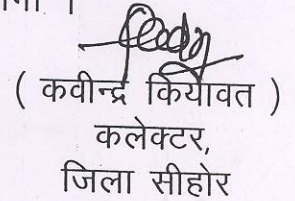 ( कवीन्द्र कियावत )
कलेक्टर,
जिला सीहोर